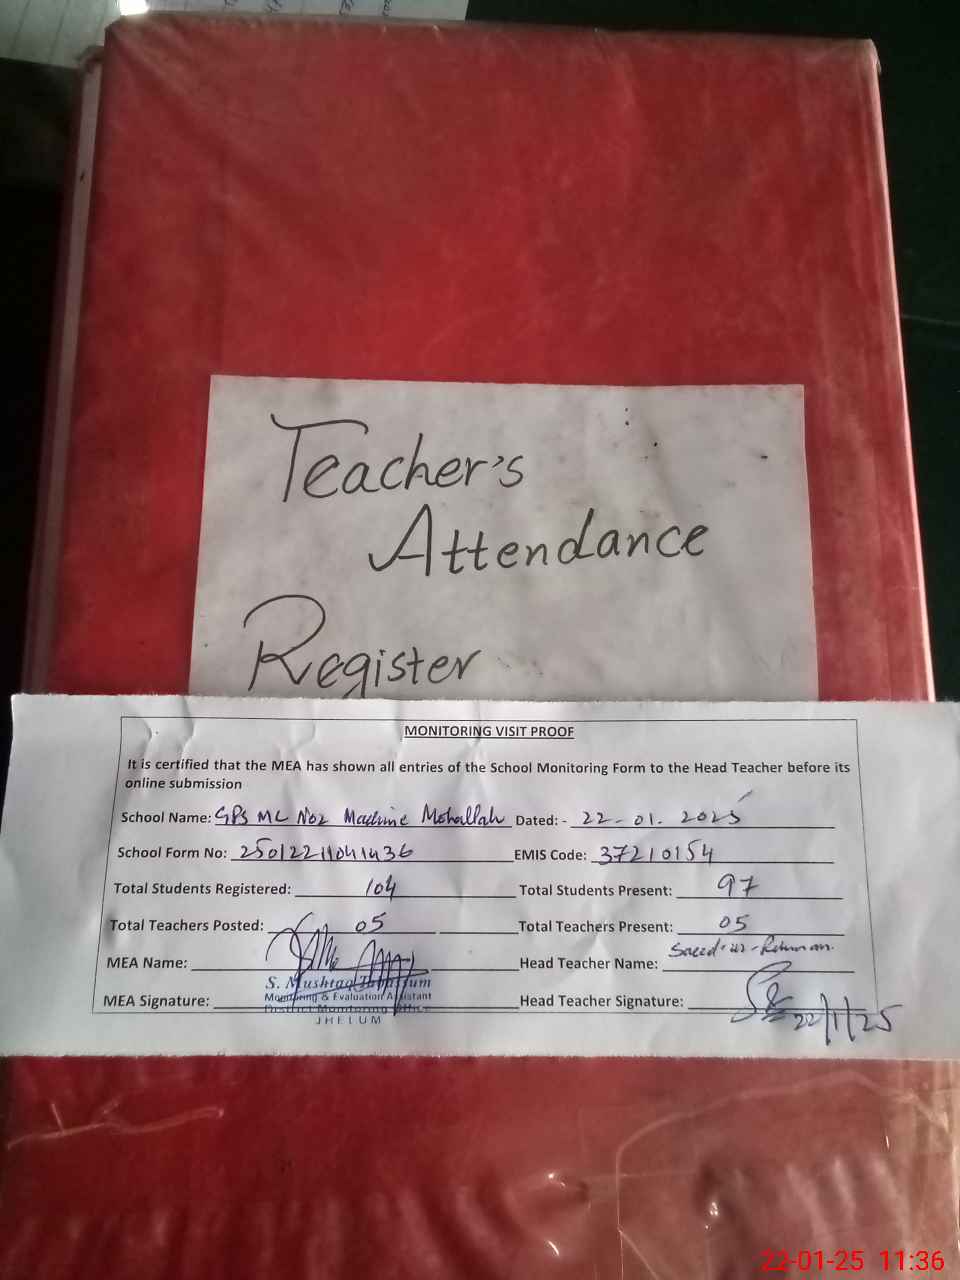 Teacher's
Attendance
Register
MONITORING VISIT PROOF
It is certified that the MEA has shown all entries of the School Monitoring Form to the Head Teacher before its
online submission
School Name: GPS MC No2 Machine Mohallah Dated: - 22-01.2025
School Form No: EMIS Code: 37210154
Total Students Registered: 104 Total Students Present: 97
Total Teachers Posted: 05 Total Teachers Present: 05
MEA Name: Head Teacher Name: Saeed-ur-Rehman.
S. Mushtaq Tabassum
Monitoring & Evaluation Assistant
MEA Signature: Head Teacher Signature: 22/1/25
District Monitoring Office
JHELUM
22-01-25 11:36